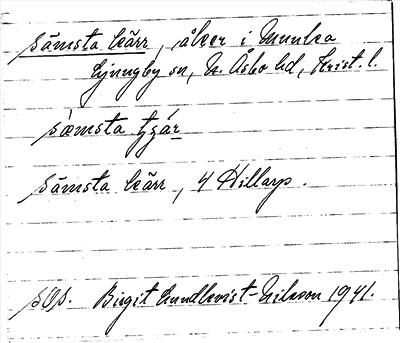 sämsta kärr, åker i Munka
Ljungby sn, N. Åsbo hd, Krist. l.
sæmsta tȥár
sämsta kärr, 4 Hillarp.
sOs. Birgit Lundkvist-Nilsson 1941.